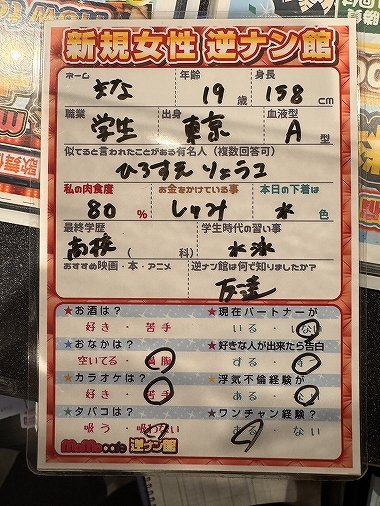 新規女性 逆ナン館
ネーム 年齢 身長
きな 19歳 158cm
職業 出身 血液型
学生 東京 A型
似てると言われたことがある有名人(複数回答可)
ひろすえ りょうこ
私の肉食度 お金をかけている事 本日の下着は
80% しゅみ 水色
最終学歴 学生時代の習い事
高校(科) 水泳
おすすめ映画・本・アニメ 逆ナン館は何で知りましたか?
友達
★お酒は? ★現在パートナーが
好き・苦手 いる・いない
★おなかは? ★好きな人が出来たら告白
空いてる・満腹 する・待つ
★カラオケは? ★浮気不倫経験が
好き・苦手 ある・ない
★タバコは? ★ワンチャン経験?
吸う・吸わない ある・ない
MoMo cafe 逆ナン館